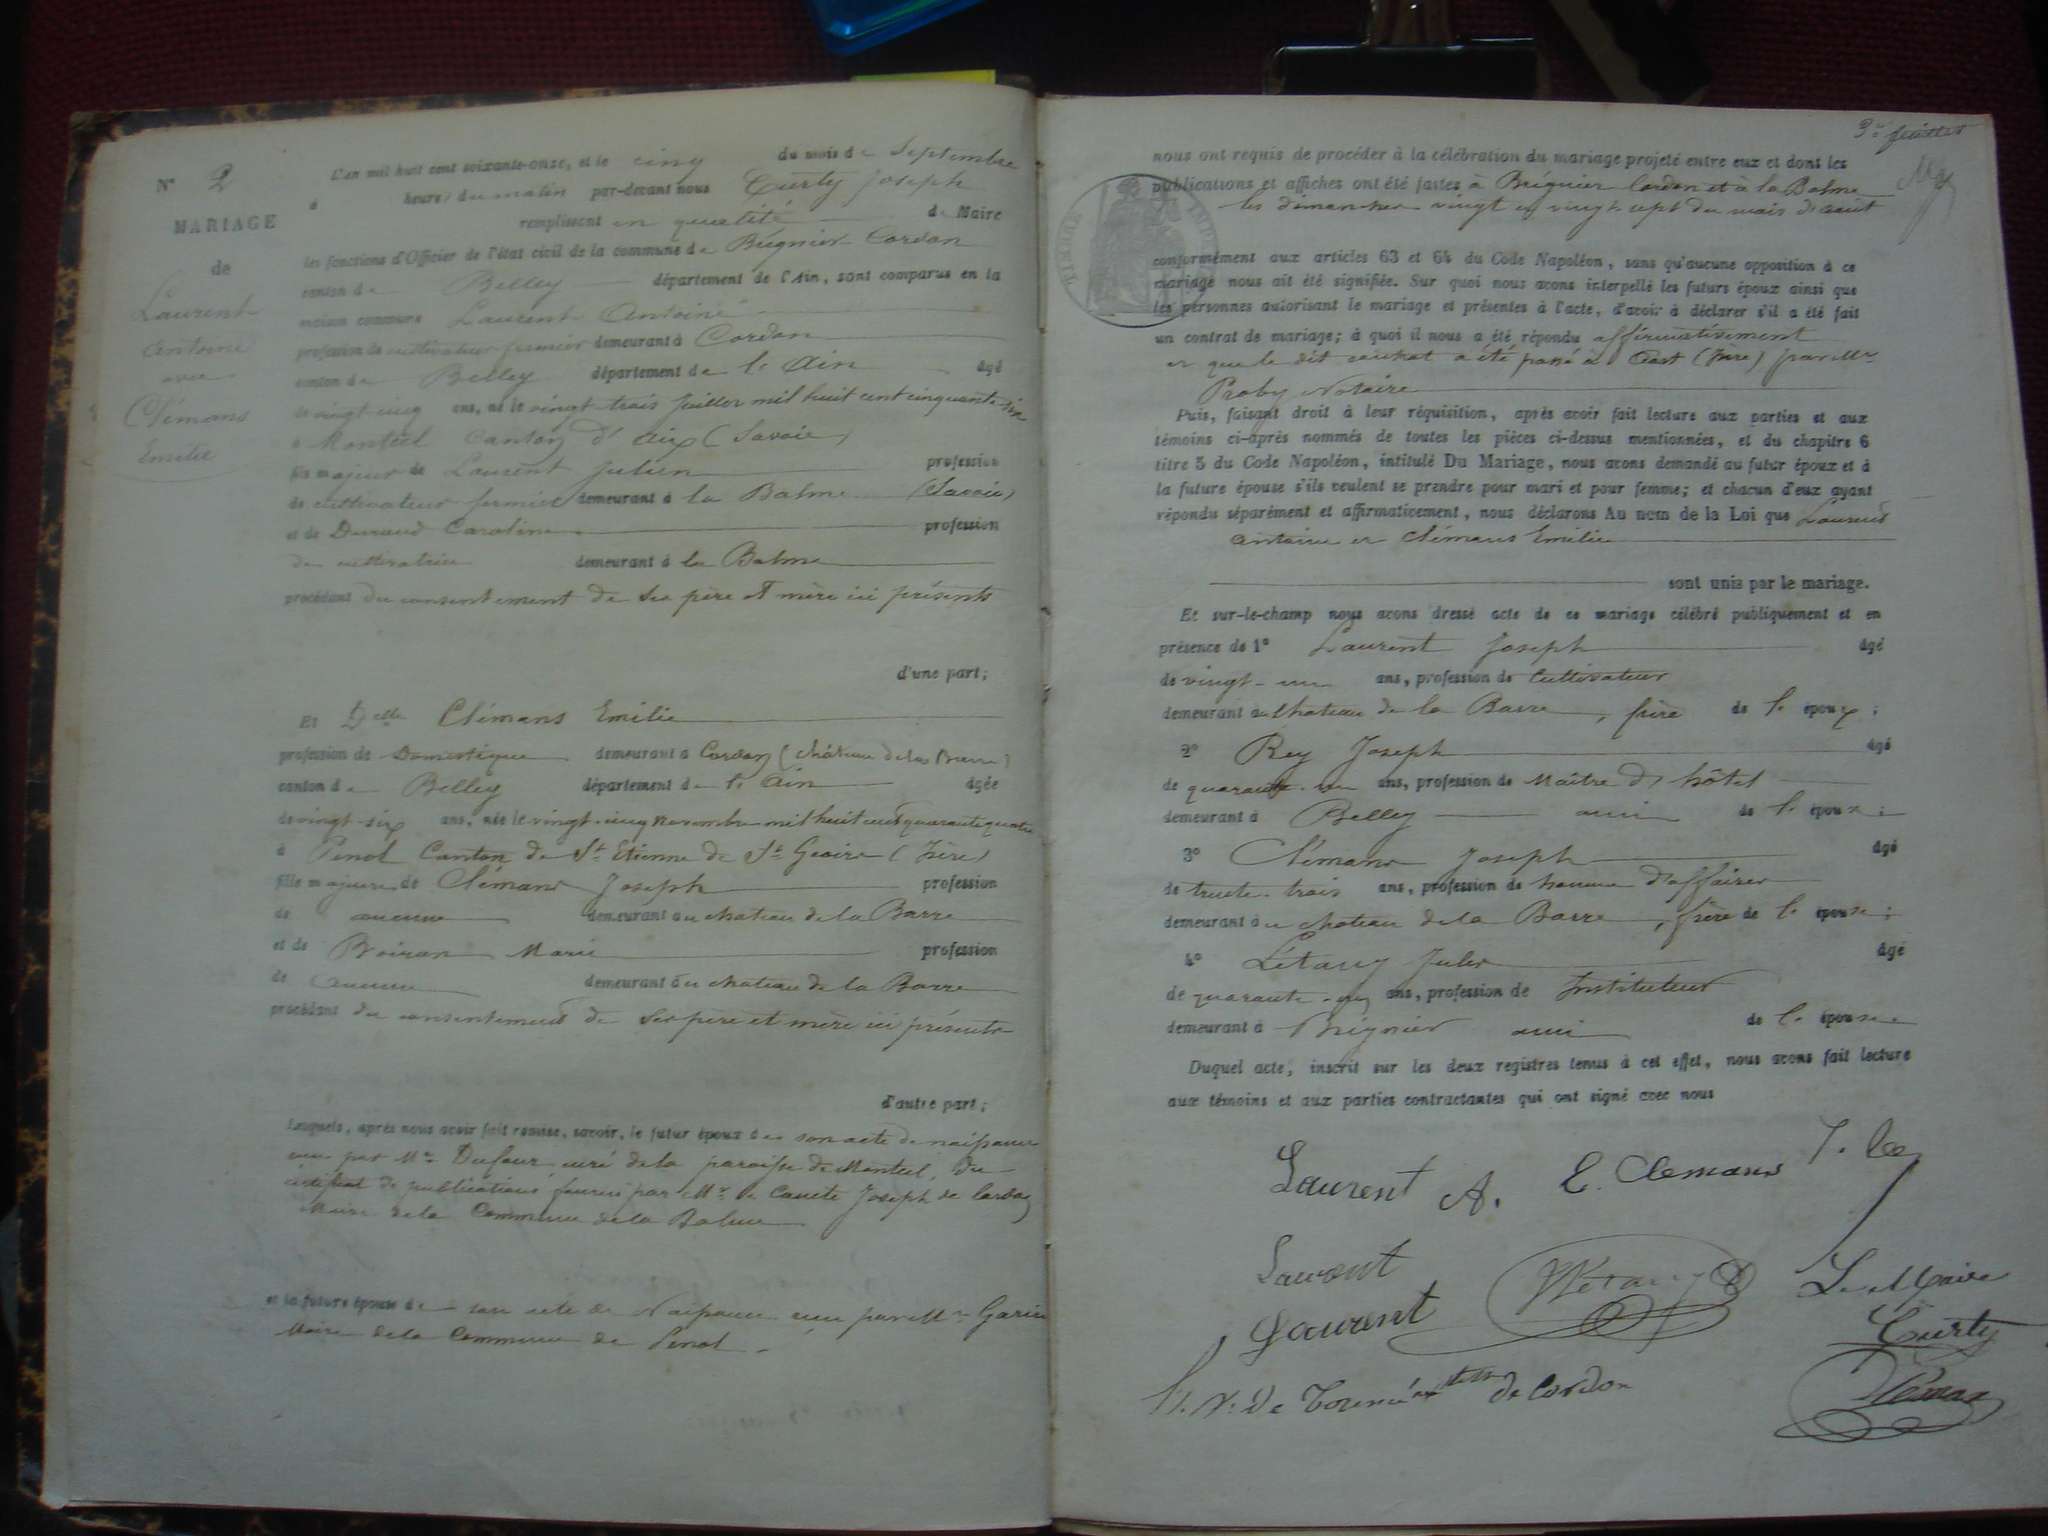 N° 2
MARIAGE
de
Laurent
Antoine
avec
Clémans
Emilie
L'an mil huit cent soixante-onze, et le cinq du mois de Septembre
à heure du matin par-devant nous Curty Joseph
remplissant en qualité de Maire
les fonctions d'Officier de l'état civil de la commune de Brégnier Cordon
canton de Belley département de l'Ain, sont comparus en la
maison commune Laurent Antoine
profession de cultivateur fermier demeurant à Cordon
canton de Belley département de l'Ain âgé
de vingt-cinq ans, né le vingt-trois juillet mil huit cent cinquante-six
à Montcel Canton d'Aix (Savoie)
fils majeur de Laurent Julien profession
de cultivateur fermier demeurant à la Balme (Savoie)
et de Durand Caroline profession
de cultivatrice demeurant à la Balme
procédant du consentement de ses père et mère ici présents
d'une part;
Et Delle Clémans Emilie
profession de Domestique demeurant à Cordon (château de la Barre)
canton de Belley département de l'Ain âgée
de vingt-six ans, née le vingt-cinq novembre mil huit cent quarante quatre
à Penol Canton de St Etienne de St Geoirs (Isère)
fille majeure de Clémans Joseph profession
de aucune demeurant au chateau de la Barre
et de Boiran Marie profession
de aucune demeurant au chateau de la Barre
procédant du consentement de ses père et mère ici présents
d'autre part;
Lesquels, après nous avoir fait remise, savoir, le futur époux de son acte de naissance
par Mr Dufour curé de la paroisse de Montcel, du
certificat de publications fourni par Mr le Comte Joseph de Cordon
Maire de la Commune de la Balme
et la future épouse de son acte de Naissance par Mr
Maire de la Commune de Penol
3e feuillet
nous ont requis de procéder à la célébration du mariage projeté entre eux et dont les
publications et affiches ont été faites à Brégnier Cordon et à la Balme
les dimanches vingt et vingt-sept du mois d'aout
TIMBRE IMPERIAL
conformément aux articles 63 et 64 du Code Napoléon, sans qu'aucune opposition à ce
mariage nous ait été signifiée. Sur quoi nous avons interpellé les futurs époux ainsi que
les personnes autorisant le mariage et présentes à l'acte, d'avoir à déclarer s'il a été fait
un contrat de mariage; à quoi il nous a été répondu affirmativement
et que le dit contrat a été passé à (Isère) par Mr
Proby Notaire
Puis, faisant droit à leur réquisition, après avoir fait lecture aux parties et aux
témoins ci-après nommés de toutes les pièces ci-dessus mentionnées, et du chapitre 6
titre 5 du Code Napoléon, intitulé Du Mariage, nous avons demandé au futur époux et à
la future épouse s'ils veulent se prendre pour mari et pour femme; et chacun d'eux ayant
répondu séparément et affirmativement, nous déclarons Au nom de la Loi que Laurent
Antoine et Clémans Emilie
sont unis par le mariage.
Et sur-le-champ nous avons dressé acte de ce mariage célébré publiquement et en
présence de 1° Laurent Joseph âgé
de vingt-un ans, profession de Cultivateur
demeurant au chateau de la Barre, frère de l'époux;
2° Rey Joseph âgé
de quarante-un ans, profession de Maître d'hôtel
demeurant à Belley ami de l'époux;
3° Clémans Joseph âgé
de trente-trois ans, profession de homme d'affaires
demeurant au chateau de la Barre, frère de l'épouse;
4° Létang Jules âgé
de quarante-un ans, profession de Instituteur
demeurant à Brégnier ami de l'épouse
Duquel acte, inscrit sur les deux registres tenus à cet effet, nous avons fait lecture
aux témoins et aux parties contractantes qui ont signé avec nous
Laurent A. E. Clemans
Laurent
Laurent
Le Maire
Curty
de Cordon